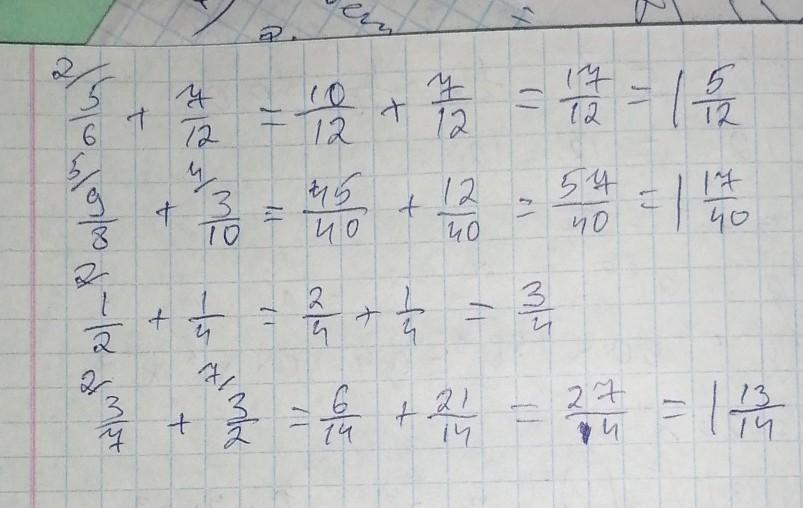 2/ 5/6 + 7/12 = 10/12 + 7/12 = 17/12 = 1 5/12
5/ 9/8 + 4/ 3/10 = 45/40 + 12/40 = 57/40 = 1 17/40
2/ 1/2 + 1/4 = 2/4 + 1/4 = 3/4
2/ 3/7 + 7/ 3/2 = 6/14 + 21/14 = 27/14 = 1 13/14